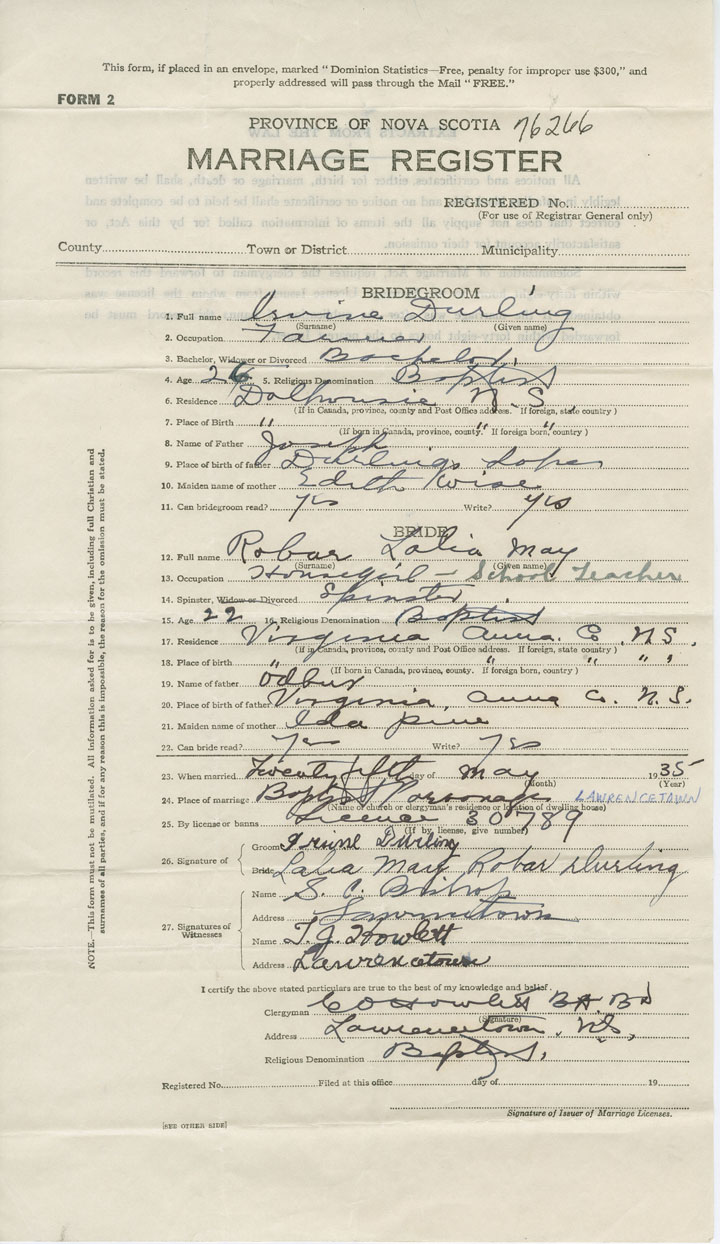 This form, if placed in an envelope, marked "Dominion Statistics—Free, penalty for improper use $300," and
properly addressed will pass through the Mail "FREE."
FORM 2
PROVINCE OF NOVA SCOTIA 76266
MARRIAGE REGISTER
REGISTERED No.
(For use of Registrar General only)
County Town or District Municipality
BRIDEGROOM
1. Full name Irvine Durling
(Surname) (Given name)
2. Occupation Farmer
3. Bachelor, Widower or Divorced Bachelor
4. Age 26 5. Religious Denomination Baptist
6. Residence Dalhousie N. S
(If in Canada, province, county and Post Office address. If foreign, state country)
7. Place of Birth " " "
(If born in Canada, province, county. If foreign born, country)
8. Name of Father Joseph
9. Place of birth of father Durlings Lopes
10. Maiden name of mother Edith Wise
11. Can bridegroom read? yes Write? yes
BRIDE
12. Full name Robar Lalia May
(Surname) (Given name)
13. Occupation Housegirl — School Teacher
14. Spinster, Widow or Divorced Spinster
15. Age 22 16. Religious Denomination Baptist
17. Residence Virginia Anna. Co. N.S.
(If in Canada, province, county and Post Office address. If foreign, state country)
18. Place of birth " " " " "
(If born in Canada, province, county. If foreign born, country)
19. Name of father Odbur
20. Place of birth of father Virginia, Anna Co. N.S.
21. Maiden name of mother Ida
22. Can bride read? Yes Write? Yes
23. When married Twenty fifth day of May 1935
(Month) (Year)
24. Place of marriage Baptist Parsonage LAWRENCETOWN
(Name of church or clergyman's residence or location of dwelling house)
25. By license or banns License 30789
(If by license, give number)
26. Signature of
Groom Irvine Durling
Bride Lalia May Robar Durling
27. Signatures of Witnesses
Name S. C. Bishop
Address Lawrencetown
Name T. J. Howlett
Address Lawrencetown
I certify the above stated particulars are true to the best of my knowledge and belief.
Clergyman C O Howlett B.A. B D
(Signature)
Address Lawrencetown, N.S.,
Religious Denomination Baptist.
Registered No. Filed at this office day of 19
Signature of Issuer of Marriage Licenses.
[SEE OTHER SIDE]
NOTE.—This form must not be mutilated. All information asked for is to be given, including full Christian and
surnames of all parties, and if for any reason this is impossible, the reason for the omission must be stated.